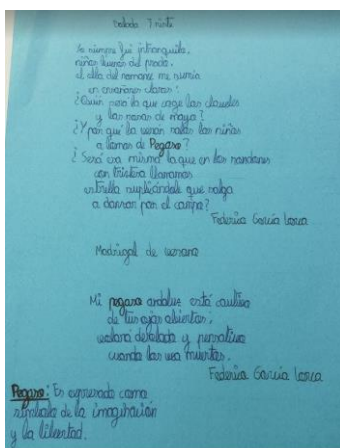 Balada Triste
Yo siempre fui intranquilo,
niños buenos del prado,
el ella del romance me sumía
en ensoñares claros:
¿Quién será la que coge los claveles
y las rosas de mayo?
¿Y por qué la verán solo los niños
a lomos de Pegaso?
¿Será esa misma la que en los rondones
con tristeza llamamos
estrella suplicándole que salga
a danzar por el campo?
Federico García Lorca
Madrigal de verano
Mi pegaso andaluz está cautivo
de tus ojos abiertos;
volará desolado y pensativo
cuando los vea muertos.
Federico García Lorca
Pegaso: Es expresado como
símbolo de la imaginación
y la libertad.